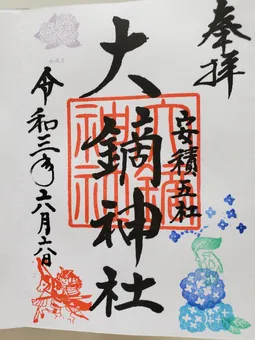 奉拝
安積五社
大鏑神社
大鏑
神社
令和三年六月